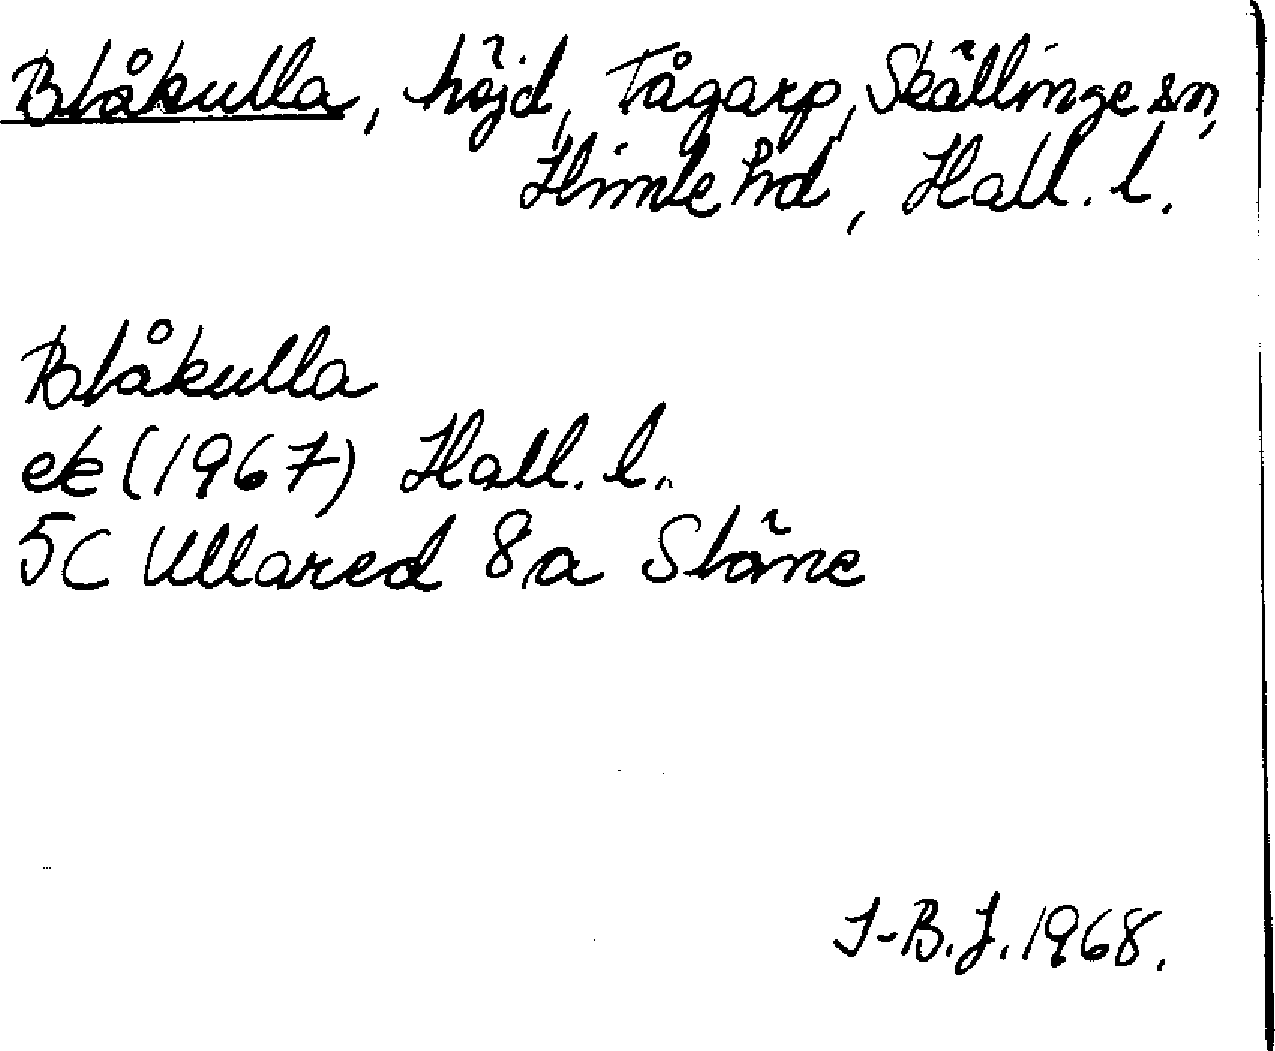 Blåkulla, höjd, Tågarp, Skällinge sn,
Himle hd, Hall. l.
Blåkulla
ek (1967) Hall. l.
5C Ullared 8 a Släne
I-B.J. 1968.